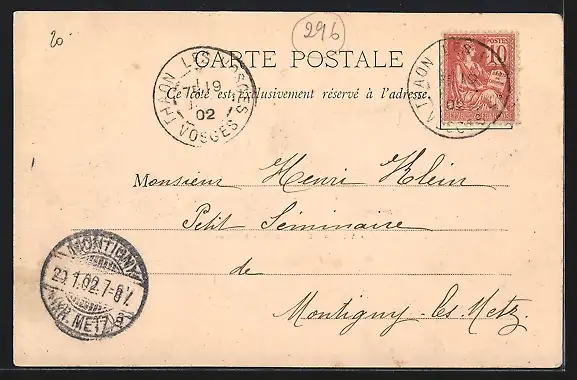 20
296
CARTE POSTALE
Ce côté est exclusivement réservé à l'adresse.
THAON LES VOSGES
19
02
VOSGES
POSTES
10
THAON LES
19
02
Monsieur Henri Klein
Petit Séminaire
de
Montigny les Metz.
MONTIGNY
20.1.02.7-8V.
(KR. METZ)